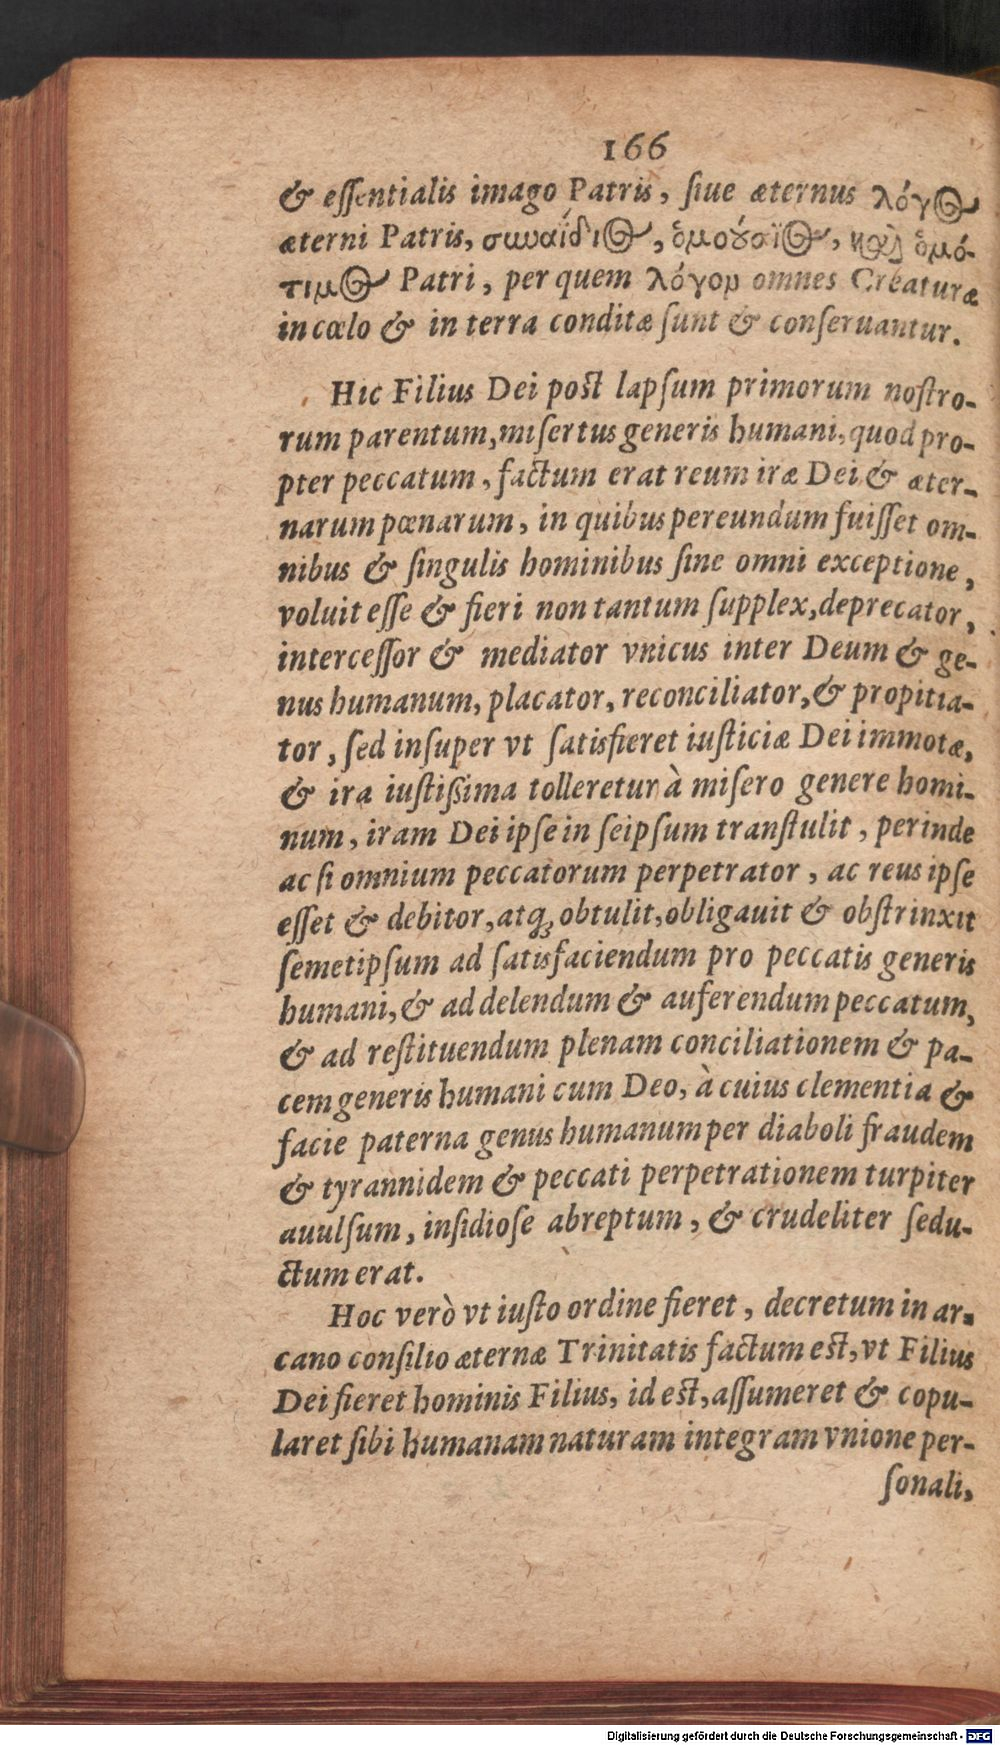 166
& essentialis imago Patris, siue æternus λόγος
æterni Patris, συναΐδιος, ὁμούσιος, καὶ ὁμό-
τιμος Patri, per quem λόγον omnes Creaturæ
in cœlo & in terra conditæ sunt & conseruantur.
Hic Filius Dei post lapsum primorum nostro-
rum parentum, misertus generis humani, quod pro-
pter peccatum, factum erat reum iræ Dei & æter-
narum pœnarum, in quibus pereundum fuisset om-
nibus & singulis hominibus sine omni exceptione,
voluit esse & fieri non tantum supplex, deprecator,
intercessor & mediator vnicus inter Deum & ge-
nus humanum, placator, reconciliator, & propitia-
tor, sed insuper vt satisfieret iusticiæ Dei immotæ,
& ira iustißima tolleretur à misero genere homi-
num, iram Dei ipse in seipsum transtulit, perinde
ac si omnium peccatorum perpetrator, ac reus ipse
esset & debitor, atq; obtulit, obligauit & obstrinxit
semetipsum ad satisfaciendum pro peccatis generis
humani, & ad delendum & auferendum peccatum,
& ad restituendum plenam conciliationem & pa-
cem generis humani cum Deo, à cuius clementia &
facie paterna genus humanum per diaboli fraudem
& tyrannidem & peccati perpetrationem turpiter
auulsum, insidiose abreptum, & crudeliter sedu-
ctum erat.
Hoc verò vt iusto ordine fieret, decretum in ar-
cano consilio æternæ Trinitatis factum est, vt Filius
Dei fieret hominis Filius, id est, assumeret & copu-
laret sibi humanam naturam integram vnione per-
sonali,
Digitalisierung gefördert durch die Deutsche Forschungsgemeinschaft - DFG